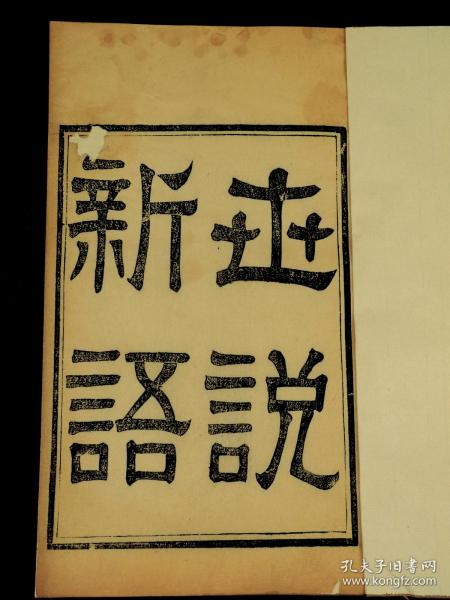 世說
新語
孔夫子旧书网
www.kongfz.com